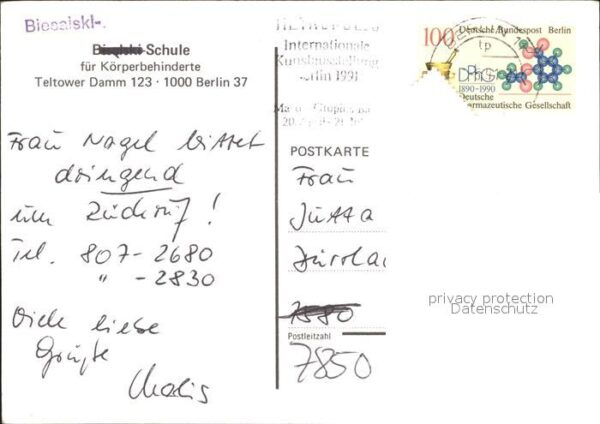 Biesalski-
Schule
für Körperbehinderte
Teltower Damm 123 · 1000 Berlin 37
Frau Nagel bittet
dringend
um Rückruf!
Tel. 807-2680
" -2830
Viele liebe
Grüße
Internationale
Kunstausstellung
Berlin 1991
100 Deutsche Bundespost Berlin
DPhG
1890-1990
Deutsche
Pharmazeutische Gesellschaft
POSTKARTE
Frau
Jutta
1580
Postleitzahl
7850
privacy protection
Datenschutz